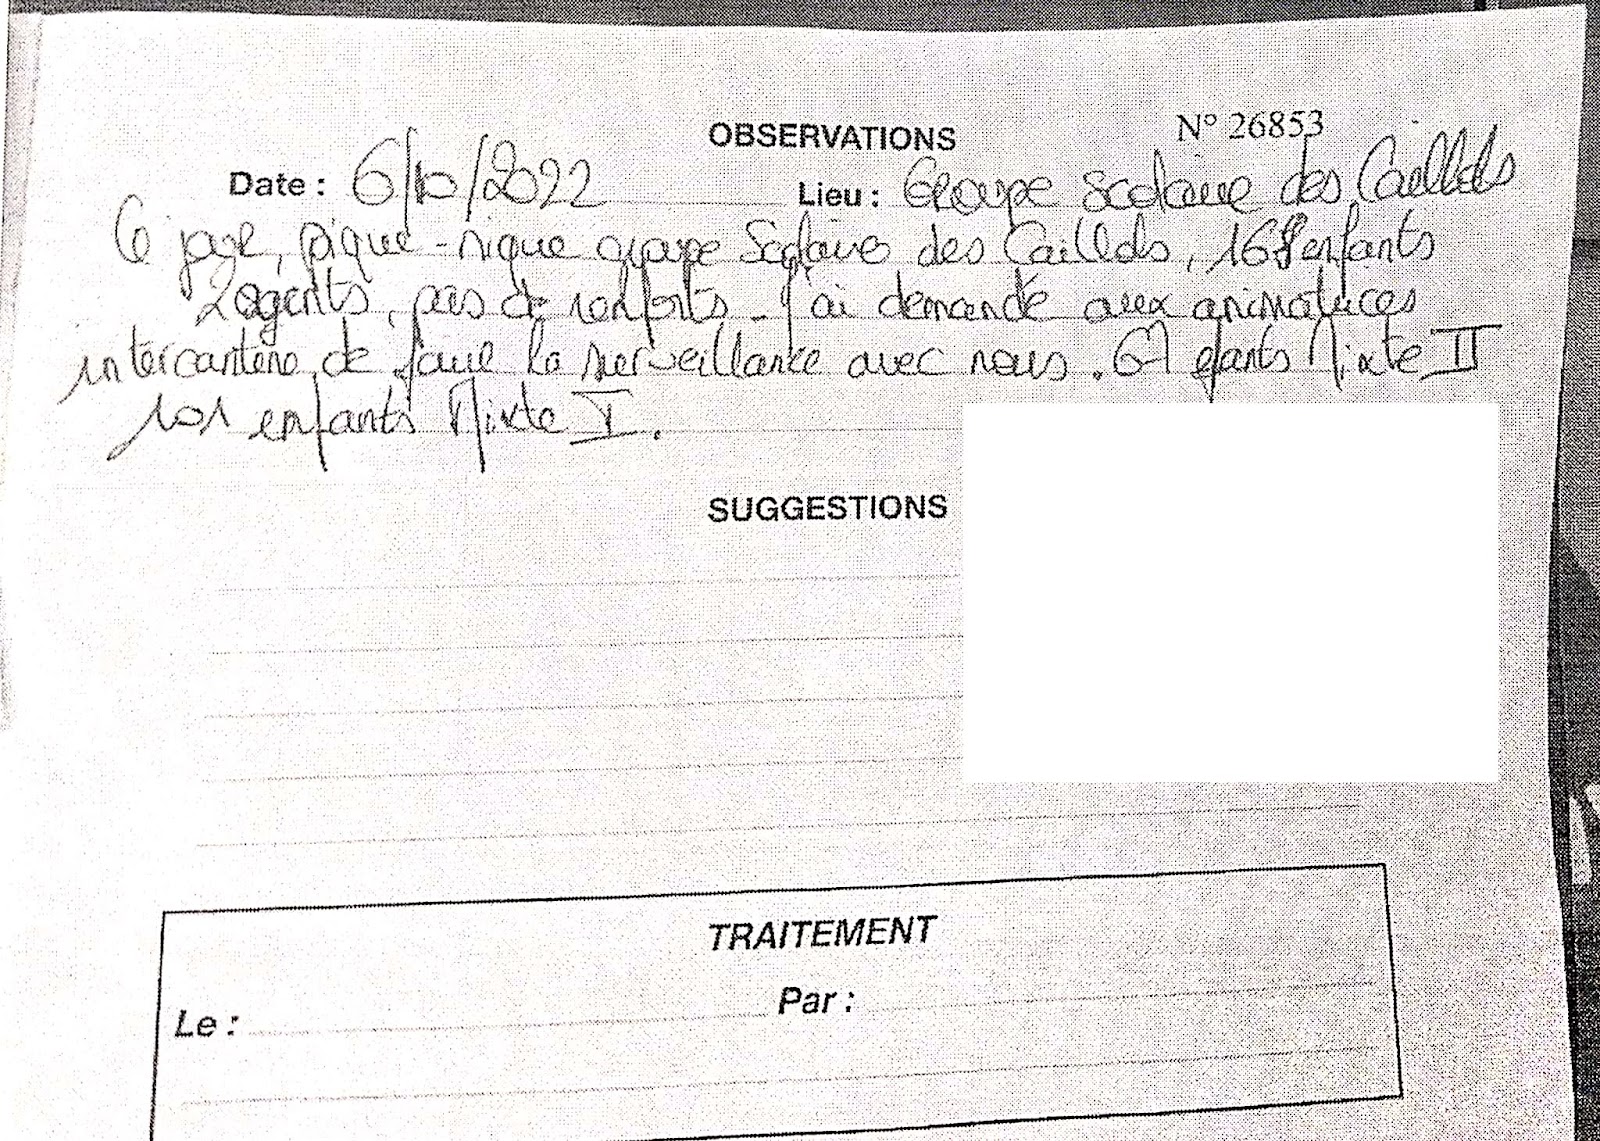 OBSERVATIONS
N° 26853
Date : 6/10/2022 Lieu : Groupe Scolaire des Caillols
Ce jour, pique-nique groupe Scolaire des Caillols, 168 enfants
2 agents, pas de renforts. J'ai demandé aux animatrices
intercantine de faire la surveillance avec nous. 67 efants Mixte II
101 enfants Mixte V.
SUGGESTIONS
TRAITEMENT
Le : Par :